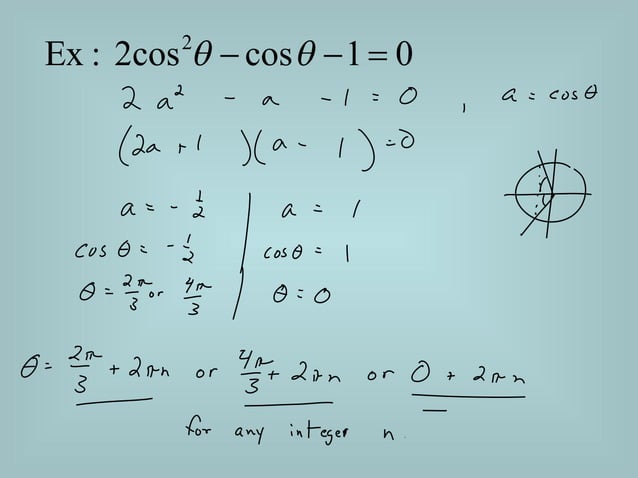 Ex : 2cos²θ − cosθ − 1 = 0
2a² - a - 1 = 0 , a = cosθ
(2a + 1)(a - 1) = 0
a = - 1/2 | a = 1
cos θ = - 1/2 | cosθ = 1
θ = 2π/3 or 4π/3 | θ = 0
θ = 2π/3 + 2πn or 4π/3 + 2πn or 0 + 2πn
for any integer n.